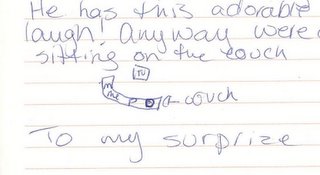 He has this adorable
laugh! Anyway were
sitting on the couch
TV
me P ← couch
To my surprize